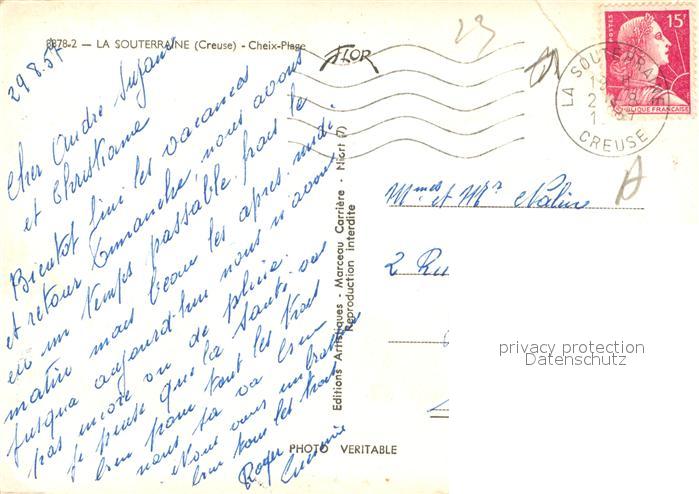 8878-2 — LA SOUTERRAINE (Creuse) - Cheix-Plage
FLOR
23
15F
POSTES
REPUBLIQUE FRANÇAISE
LA SOUTERRAINE
CREUSE
29.8.57
Cher André Suzanne
et Christiane
Bientot fini les vacances
et retour Dimanche, nous avons
eu un temps passable frais le
matin mais beau les apres-midi
Jusqua aujourd'hui nous n'avons
pas encore eu de pluie.
Je pense que la santé va
bien pour tout les trois
nous sa va bien
Nous vous embrassons
bien tous les trois
Roger
Mmes et Mr
2 Ru
Editions Artistiques - Marceau Carrière - Niort (7)
Reproduction Interdite
PHOTO VERITABLE
privacy protection
Datenschutz